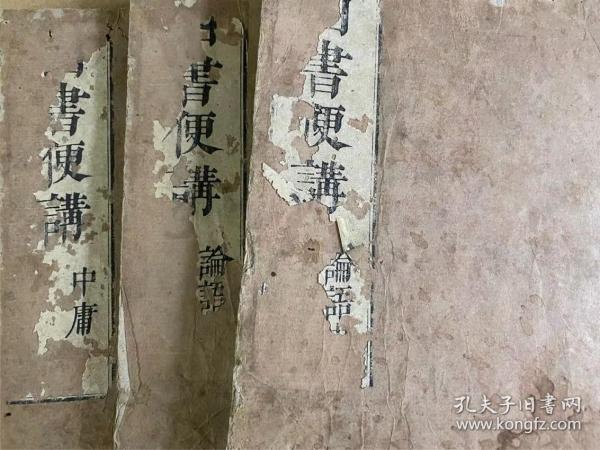 書便講
論語
書便講
論語
書便講
中庸
孔夫子旧書网
www.kongfz.com